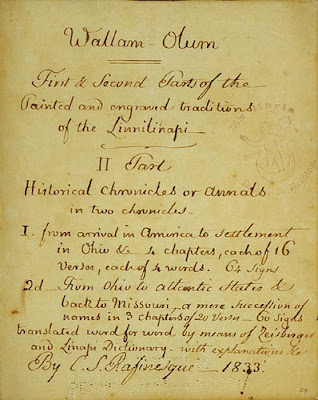 Wallam-Olum
First & Second Parts of the
Painted and engraved traditions
of the Linnilinapi
II Part
Historical Chronickes or annals
in two chronicles
I. from arrival in America to settlement
in Ohio &c 4 chapters, each of 16
Verses, each of 4 words. 64 Signs
2d From Ohio to atlantic States &
back to Missouri, a mere succession of
names in 3 chapters of 20 Verses - 60 Signs
translated word for word by means of Zeisberger
and Linapi Dictionary. with explanations &c
By C. S. Rafinesque - 1833.